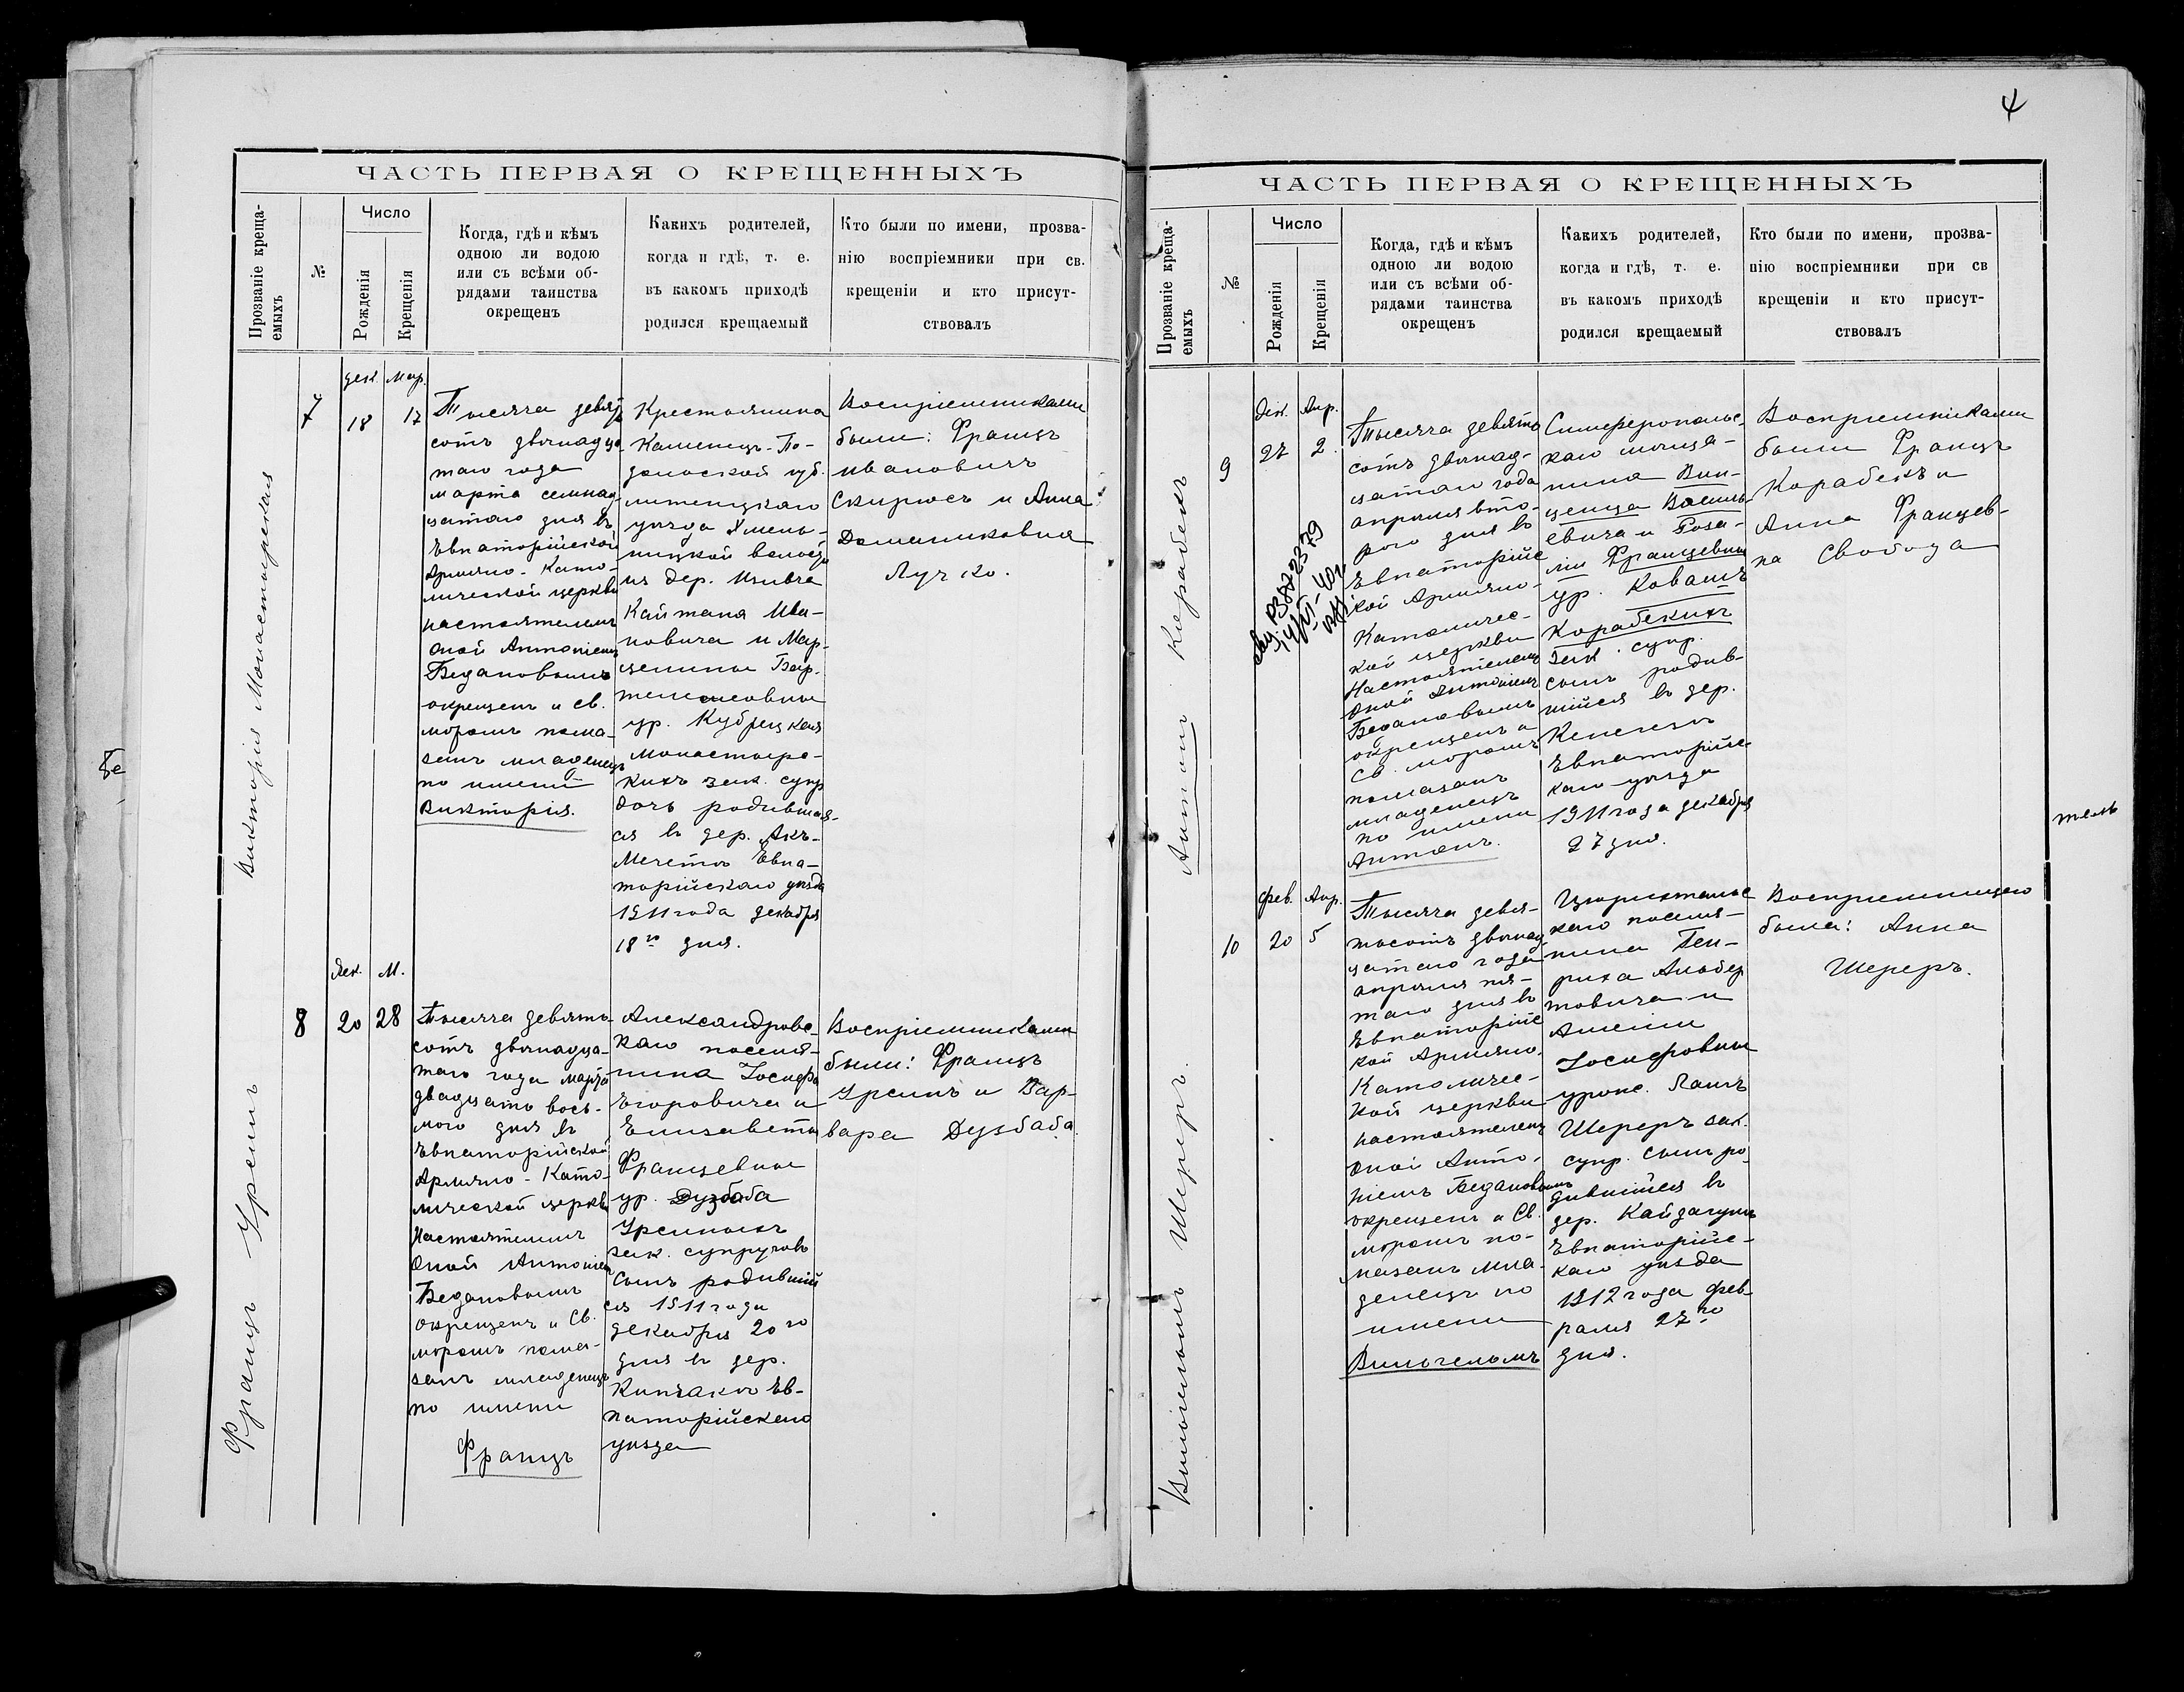 ЧАСТЬ ПЕРВАЯ О КРЕЩЕННЫХЪ
Прозваніе креща-
емыхъ
№
Число
Рожденія
Крещенія
Когда, гдѣ и кѣмъ
одною ли водою
или съ всѣми об-
рядами таинства
окрещенъ
Какихъ родителей,
когда и гдѣ, т. е.
въ какомъ приходѣ
родился крещаемый
Кто были по имени, прозва-
нію воспріемники при св.
крещеніи и кто присут-
ствовалъ
Викторія Монастырская
7
дек. Мар.
18 17
Тысяча девять
сотъ двѣнадца-
таго года
марта семнад-
цатаго дня въ
Евпаторійской
Армяно-Като-
лической церкви
настоятелемъ
оной Антоніемъ
Бедановымъ
окрещенъ и св.
мѵромъ пома-
занъ младенецъ
по имени
Викторія.
Крестьянина
Каменецъ-По-
дольской губ.
уѣзда Хмель-
ницкой волости
изъ дер.
Каитана Ива-
новича и Мар-
ур.
Монастырс-
кихъ зак. супр.
дочь родившая-
ся въ дер. Акъ-
Мечеть Евпа-
торійскаго уѣзда
1911 года декабря
18го дня.
Воспріемниками
были: Францъ
Ивановичъ
Скирюсъ и Анна
Доминиковна
Лучко.
Францъ Уреинъ
8
Дек. М.
20 28
Тысяча девять-
сотъ двѣнадца-
таго года марта
двадцать вось-
мого дня въ
Евпаторійской
Армяно-Като-
лической церкви
Настоятелемъ
Оной Антоніемъ
Бедановымъ
окрещенъ и Св.
мѵромъ пома-
занъ младенецъ
по имени
Францъ
Александровс-
каго поселя-
нина Іосифа
Егоровича и
Елизаветы
Францевны
ур. Дузбаба
зак. супруговъ
сынъ родившій
ся 1911 года
декабря 20го
дня въ дер.
Кипчакъ Ев-
паторійскаго
уѣзда
Воспріемниками
были: Францъ
Уреинъ и Вар-
вара Дузбаба.
4
ЧАСТЬ ПЕРВАЯ О КРЕЩЕННЫХЪ
Прозваніе креща-
емыхъ
№
Число
Рожденія
Крещенія
Когда, гдѣ и кѣмъ
одною ли водою
или съ всѣми об-
рядами таинства
окрещенъ
Какихъ родителей,
когда и гдѣ, т. е.
въ какомъ приходѣ
родился крещаемый
Кто были по имени, прозва-
нію воспріемники при св
крещеніи и кто присут-
ствовалъ
Антонъ Карабекъ
9
Дек. Апр.
27 2
Тысяча девять
сотъ двѣнад-
цатаго года
апрѣля вто-
рого дня въ
Евпаторійс
кой Армяно-
Католичес-
кой церкви
Настоятелемъ
Оной Антоніемъ
Бедановымъ
окрещенъ и
св. мѵромъ
помазанъ
младенецъ
по имени
Антонъ.
Симферопольс-
каго мѣща-
нина Вин-
цента Василь-
евича и Роза-
ліи Францевны
ур. Ковашъ
Карабекихъ
зак. супр.
сынъ родив-
шійся въ дер.
Кенегезъ
Евпаторійс-
каго уѣзда
1911 года декабря
27 дня.
Воспріемниками
были Францъ
Карабекъ и
Анна Францев-
на Свобода
Вильгельмъ Шереръ.
10
Фев. Апр.
20 5
Тысяча девя-
тьсотъ двѣнад-
цатаго года
апрѣля пя-
таго дня въ
Евпаторійс
кой Армяно-
Католичес-
кой церкви
настоятелемъ
Оной Анто-
ніемъ Бедановымъ
окрещенъ и Св.
мѵромъ по-
мазанъ мла-
денецъ по
имени
Вильгельмъ
Цюрихтальс
каго поселя-
нина Ген-
риха Альбер
товича и
Амаліи
Іосифовны
урож.
Шереръ зак.
супр. сынъ ро-
дившійся въ
дер. Кайдагулъ
Евпаторійс-
каго уѣзда
1912 года фев-
раля 27го
дня.
Воспріемницею
была: Анна
Шереръ.
тель